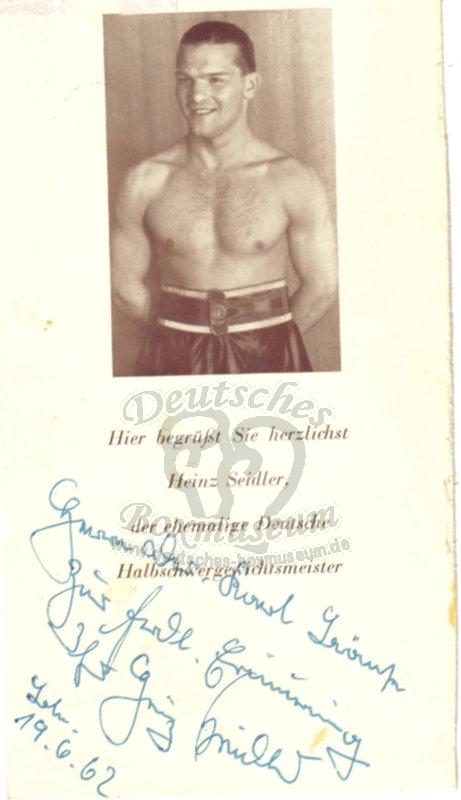 Deutsches
Hier begrüßt Sie herzlichst
Heinz Seidler,
Boxmuseum
der ehemalige Deutsche
www.deutsches-boxmuseum.de
Halbschwergewichtsmeister
Karl
Zur frdl. Erinnerung
Ihr Heinz Seidler
19.6.62